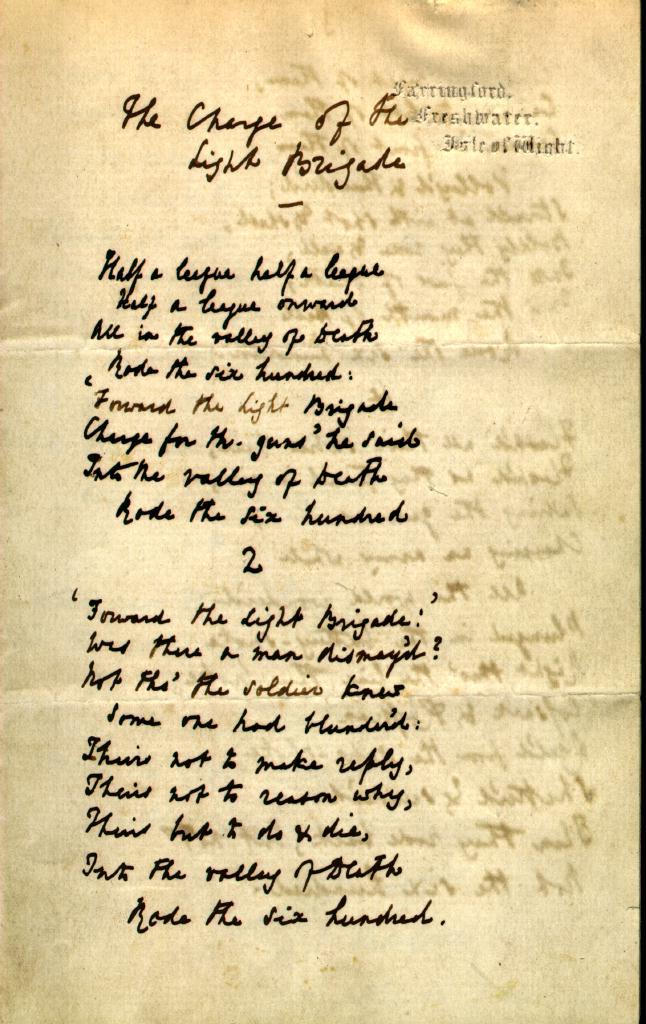 Farringford.
Freshwater.
Isle of Wight.
The Charge of the
Light Brigade
Half a league half a league
Half a league onward
All in the valley of Death
Rode the six hundred:
'Forward the Light Brigade
Charge for the guns' he said
Into the valley of Death
Rode the six hundred
2
'Forward the Light Brigade!'
Was there a man dismay'd?
Not tho' the soldier knew
Some one had blunder'd:
Theirs not to make reply,
Theirs not to reason why,
Theirs but to do & die,
Into the valley of Death
Rode the six hundred.